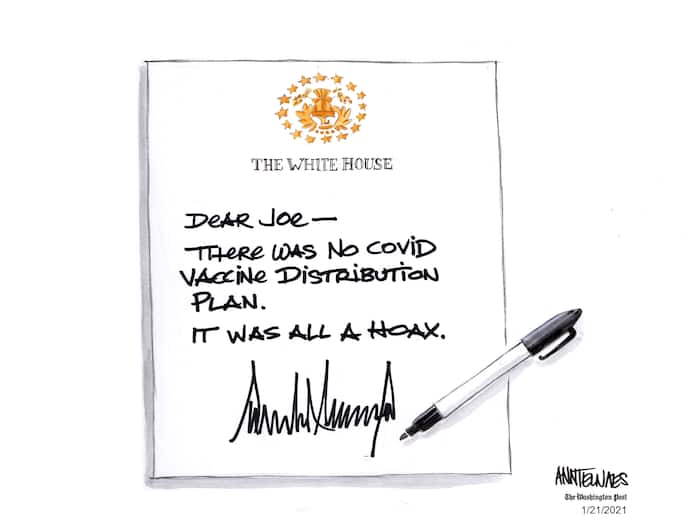 THE WHITE HOUSE
DEAR JOE —
THERE WAS NO COVID
VACCINE DISTRIBUTION
PLAN.
IT WAS ALL A HOAX.
ANN TELNAES
The Washington Post
1/21/2021